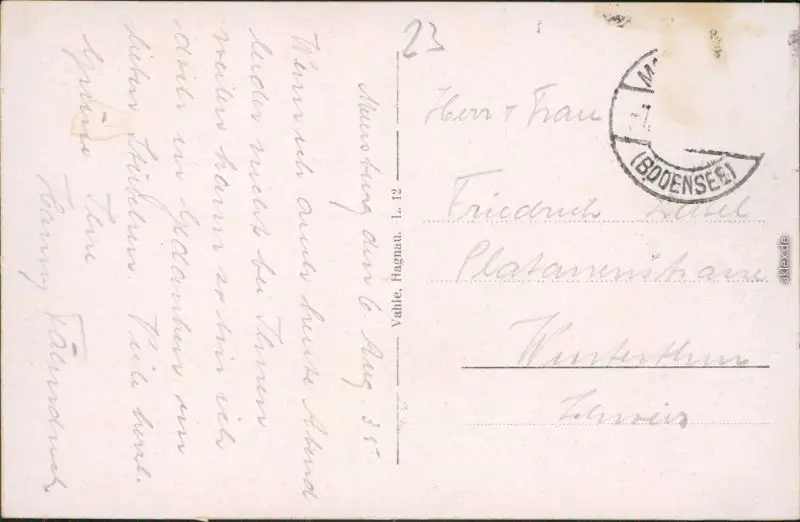 23
Meersburg den 6 Aug. 35
Wenn ich auch heute Abend
leider nicht bei Ihnen
weilen kann so bin ich
doch in Gedanken im
lieben Stübchen. Viele herzl.
Grüsse Ihre
Hanny
Vahle, Hagnau. L. 12
Herr & Frau
Friedrich
Platanenstrasse
Winterthur
Schweiz
(BODENSEE)
aklex.de